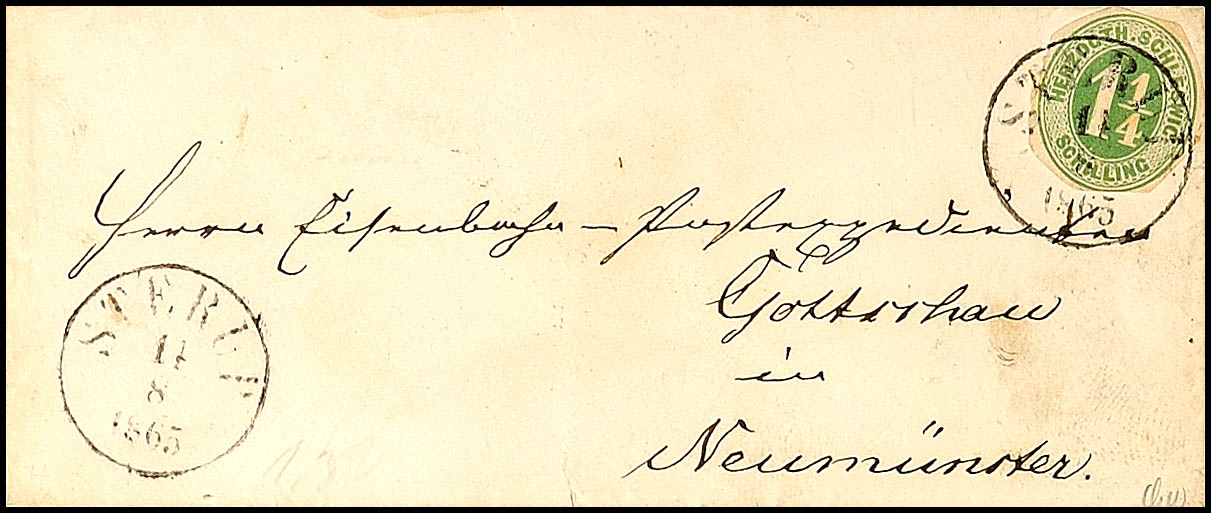 HERZOGTH. SCHLESWIG
1¼
SCHILLING
1865
Herrn Eisenbahn-Postexpedienten
Gottschau
in
Neumünster.
STERUP
14
8
1865